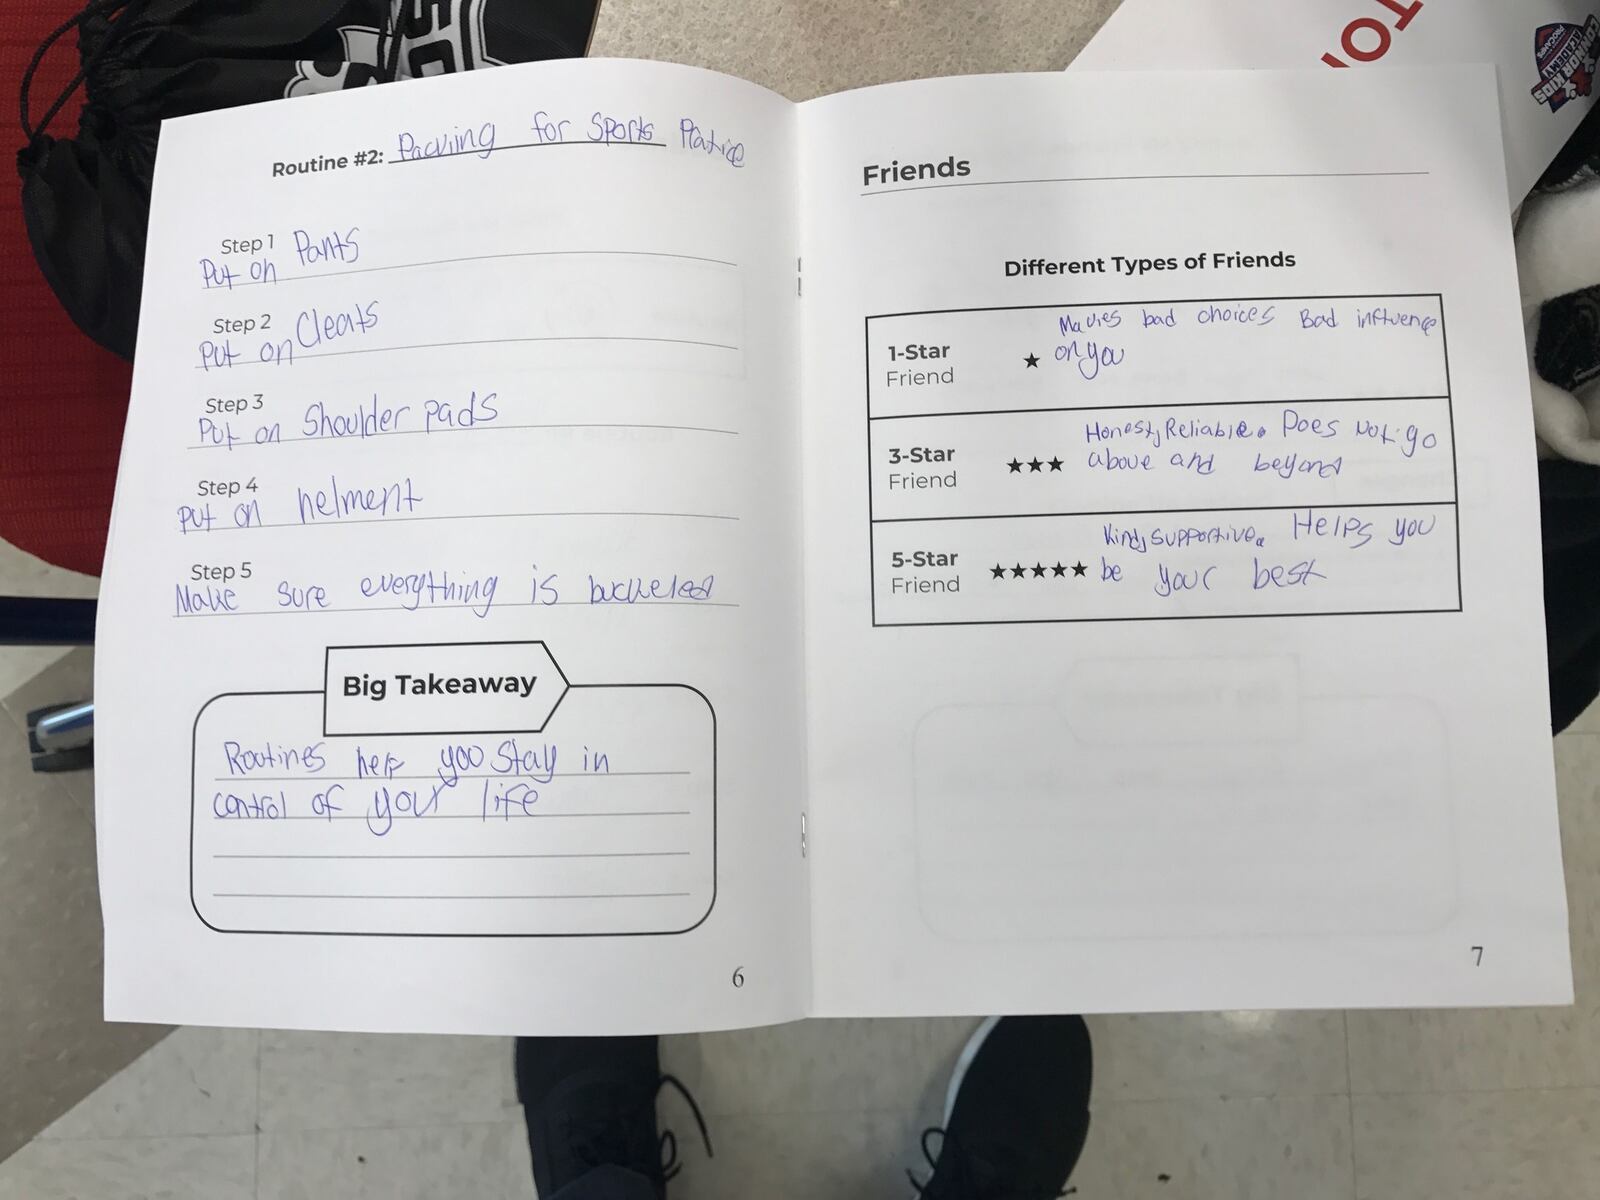 Routine #2: Pacuing for Sports Platice
Step 1 Pants
Put on
Step 2 Cleats
Put on
Step 3
Put on Shoulder pads
Step 4
Put on helment
Step 5
Make sure everything is buckeled
Big Takeaway
Routines help you Stay in
control of your life
6
Friends
Different Types of Friends
1-Star
Friend
★
Makes bad choices Bad influence
on you
3-Star
Friend
★★★
Honest, Reliable. Does Not go
above and beyond
5-Star
Friend
★★★★★
Kind, supportive. Helps you
be your best
7
CONNOR KIDS
ACADEMY
PROCAMPS